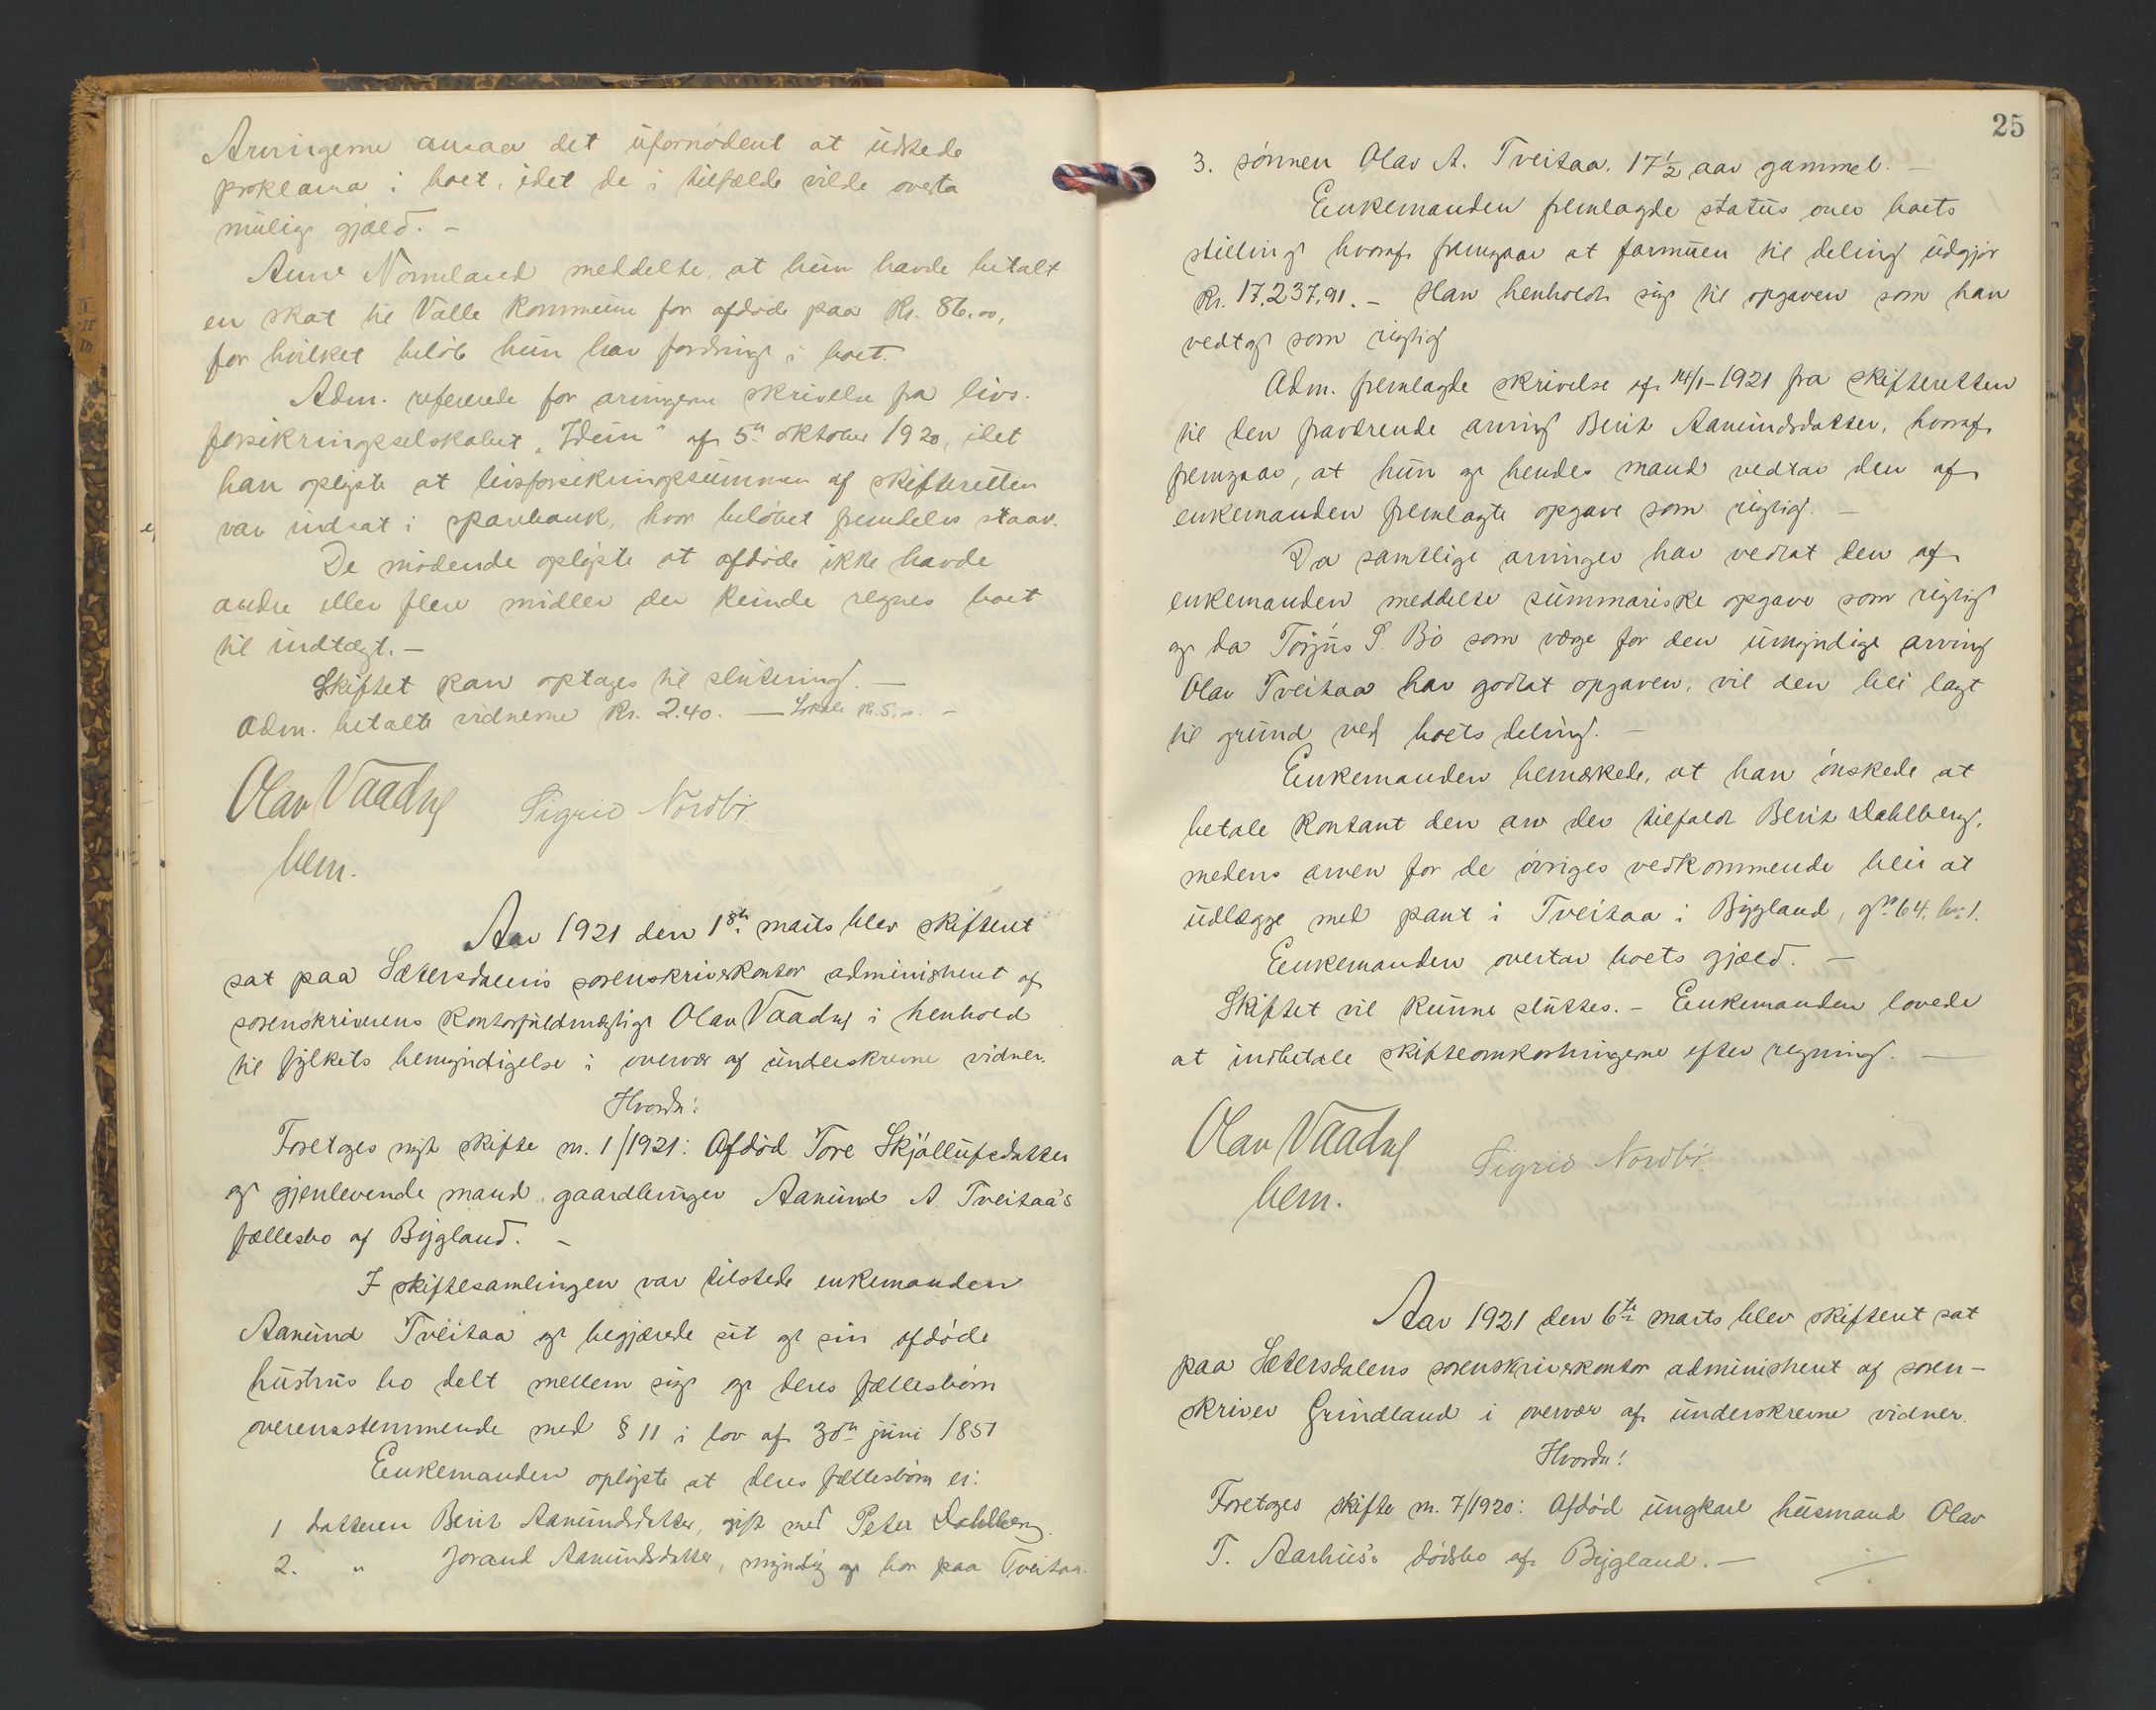 Arvingerne ansaa det ufornødent at utstede
proklama i boet, idet de i tilfælde vilde overta
mulig gjæld. –
Anne Nomeland meddelte, at hun havde betalt
en skat til Valle kommune for afdøde paa Kr. 86.00,
for hvilket beløb hun har fordring i boet.
Adm. refererede for arvingerne skrivelse fra livs-
forsikringsselskabet "Idun" af 5te oktober 1920, idet
han oplyste at livsforsikringssummen af skifteretten
var indsat i sparebank, hvor beløbet fremdeles staar.
De mødende oplyste at afdøde ikke havde
andre eller flere midler der kunde regnes boet
til indtægt. –
Skiftet kan optages til slutning. –
Adm. betalte vidnerne Kr. 2.40. – Lokale Kr. 5.00. –
Olav Vaadny Sigrid Nordbø.
bem.
Aar 1921 den 1ste marts blev skifteret
sat paa Sætersdalens sorenskriverkontor administrert af
sorenskriverens kontorfuldmægtige Olav Vaadny i henhold
til fylkets bemyndigelse i overvær af underskrevne vidner.
Hvorda:
Foretoges nyt skifte nr. 1/1921: Afdød Tore Skjøllufsdatter
og gjenlevende mand gaardbruger Aanund A. Tveitaa's
fællesbo af Bygland. –
I skiftesamlingen var tilstede enkemanden
Aanund Tveitaa og begjærede sit og sin afdøde
hustrus bo delt mellem sig og deres fællesbørn
overensstemmende med § 11 i lov af 30te juni 1851
Enkemanden oplyste at deres fællesbørn er:
1 datteren Berit Aanundsdatter, gift med Peter Dahlberg.
2. " Jorand Aanundsdatter, myndig og bor paa Tveitaa.
25
3. sønnen Olav A. Tveitaa. 17½ aar gammel. –
Enkemanden fremlagde status over boets
stilling hvoraf fremgaar at formuen til deling udgjør
Kr. 17,237,91. – Han henholdt sig til opgaven som han
vedtog som rigtig
Adm. fremlagde skrivelse af 14/1-1921 fra skifteretten
til den fraværende arving Berit Aanundsdatter, hvoraf
fremgaar, at hun og hendes mand vedtar den af
enkemanden fremlagte opgave som rigtig. –
Da samtlige arvinger har vedtat den af
enkemanden meddelte summariske opgave som rigtig
og da Torjus S. Bø som værge for den umyndige arving
Olav Tveitaa har godtat opgaven, vil den bli lagt
til grund ved boets deling. –
Enkemanden bemærkede, at han ønskede at
betale kontant den arv der tilfaldt Berit Dahlberg,
medens arven for de øvriges vedkommende blir at
udlægge med pant i Tveitaa i Bygland, gno 64. bno 1.
Enkemanden overtar boets gjæld. –
Skiftet vil kunne sluttes. – Enkemanden lovede
at indbetale skifteomkostningerne efter regning. –
Olav Vaadny Sigrid Nordbø.
bem.
Aar 1921 den 6te marts blev skifteret sat
paa Sætersdalens sorenskriverkontor administrert af soren-
skriver Grindland i overvær af underskrevne vidner.
Hvorda!
Foretoges skifte nr. 7/1920: Afdød ungkarl husmand Olav
T. Aarhus's dødsbo af Bygland. –